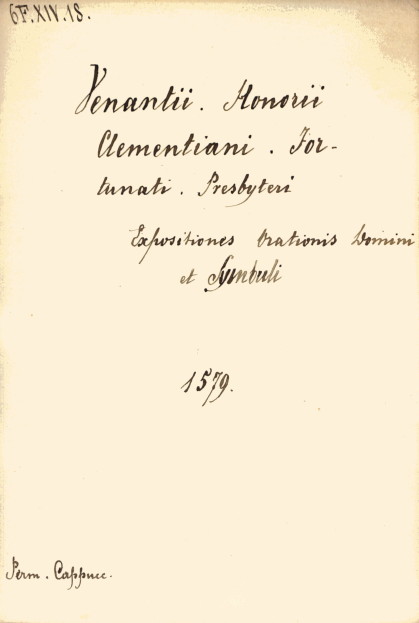 6F.XIV.18.
Venantii. Honorii
Clementiani. For-
tunati. Presbyteri
Expositiones Orationis Domini
et Symbuli
1579.
Perm. Cappucc.